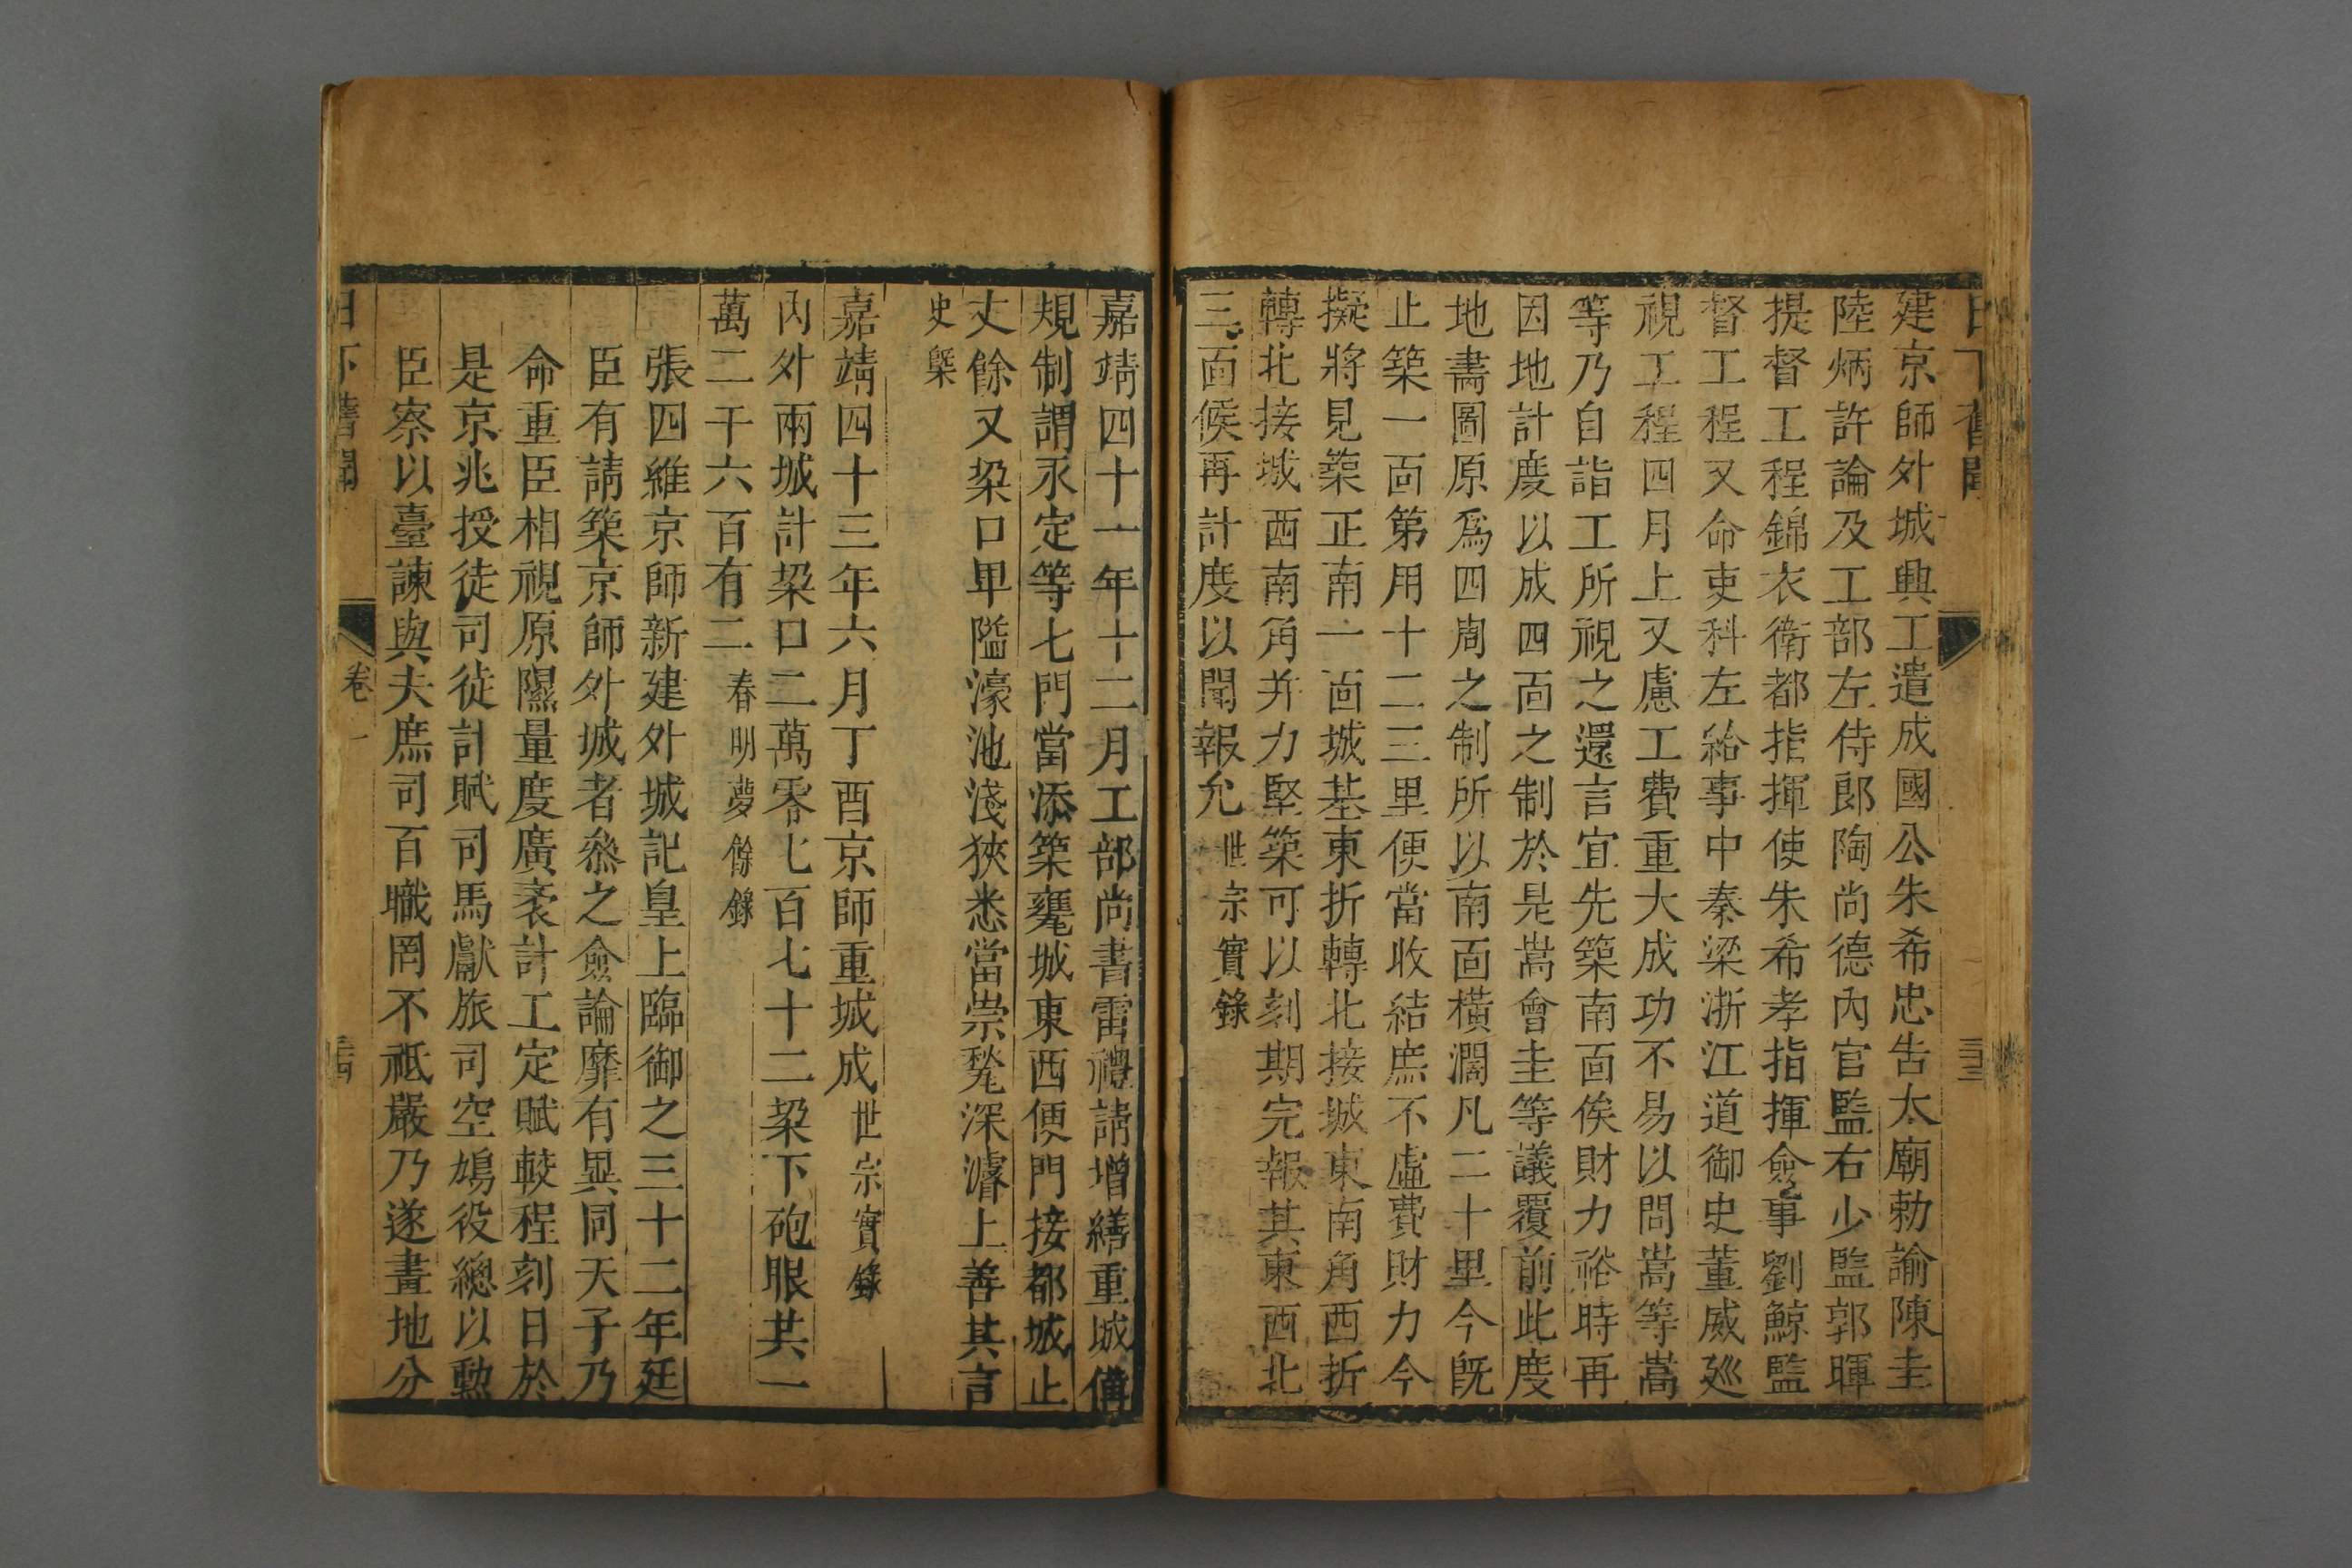 日下舊聞
三十三
建京師外城興工遣成國公朱希忠告太廟勅諭陳圭
陸炳許論及工部左侍郎陶尚德內官監右少監郭暉
提督工程錦衣衛都指揮使朱希孝指揮僉事劉鯨監
督工程又命吏科左給事中秦梁浙江道御史董威廵
視工程四月上又慮工費重大成功不易以問嵩等嵩
等乃自詣工所視之還言宜先築南面俟財力裕時再
因地計度以成四面之制於是嵩會圭等議覆前此度
地畵圖原爲四周之制所以南面橫濶凡二十里今旣
止築一面第用十二三里便當收結庶不虛費財力今
擬將見築正南一面城基東折轉北接城東南角西折
轉北接城西南角并力堅築可以刻期完報其東西北
三面候再計度以聞報允世宗實錄
嘉靖四十一年十二月工部尚書雷禮請增繕重城備
規制謂永定等七門當添築甕城東西便門接都城止
丈餘又垜口卑隘濠池淺狹悉當崇甃深濬上善其言
史槩
嘉靖四十三年六月丁酉京師重城成世宗實錄
內外兩城計垜口二萬零七百七十二垜下砲眼共一
萬二千六百有二春明夢餘錄
張四維京師新建外城記皇上臨御之三十二年廷
臣有請築京師外城者叅之僉論靡有異同天子乃
命重臣相視原隰量度廣袤計工定賦較程刻日於
是京兆授徒司徒計賦司馬獻旅司空鳩役總以勲
臣察以臺諫與夫庶司百職罔不祗嚴乃遂畫地分
日下舊聞
卷一
三十四